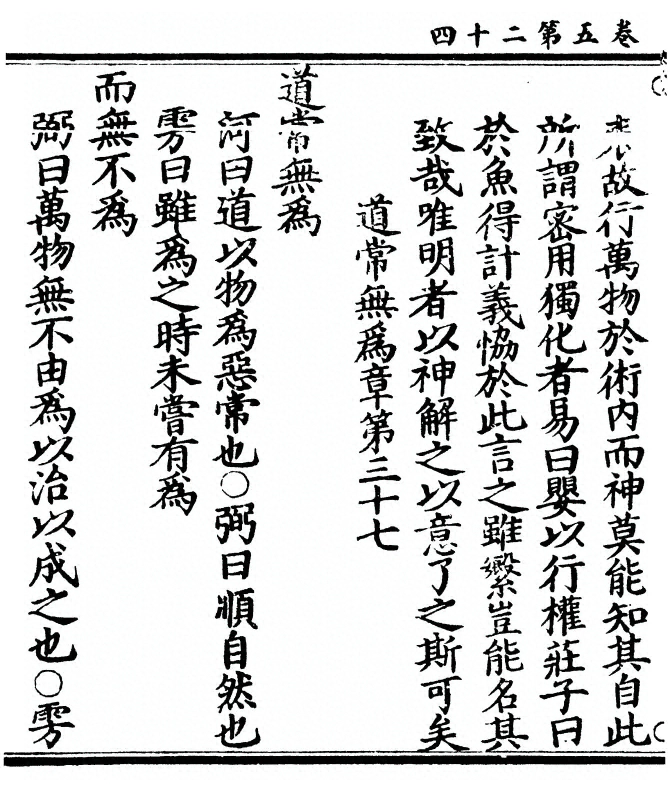 卷五第二十四
故行萬物於術内而神莫能知其自此
所謂密用獨化者易曰巽以行權莊子曰
於魚得計義恊於此言之雖繁豈能名其
致哉唯明者以神解之以意了之斯可矣
道常無爲章第三十七
道常無爲
河曰道以物爲惡常也○弼曰順自然也
雱曰雖爲之時未嘗有爲
而無不爲
弼曰萬物無不由爲以治以成之也○雱